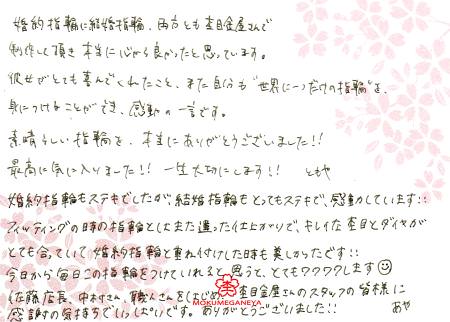 婚約指輪に結婚指輪、両方とも杢目金屋さんで
制作して頂き本当に心から良かったと思っています。
彼女がとても喜んでくれたこと、また自分も"世界に一つだけの指輪"を、
身につけることができ、感動の一言です。
素晴らしい指輪を、本当にありがとうございました!!
最高に気に入りました!! 一生大切にします!! ともや
婚約指輪もステキでしたが、結婚指輪もとってもステキで、感動しています!!
フィッティングの時の指輪とはまた違った仕上がりで、キレイな杢目とダイヤが
とても合っていて婚約指輪と重ね付けした時も美しかったです!!
今日から毎日この指輪をつけていれると思うと、とてもワクワクします
佐藤店長、中村さん、職人さんをはじめ 杢目金屋さんのスタッフの皆様に
感謝の気持ちでいっぱいです。ありがとうございました!! あや
MOKUMEGANEYA